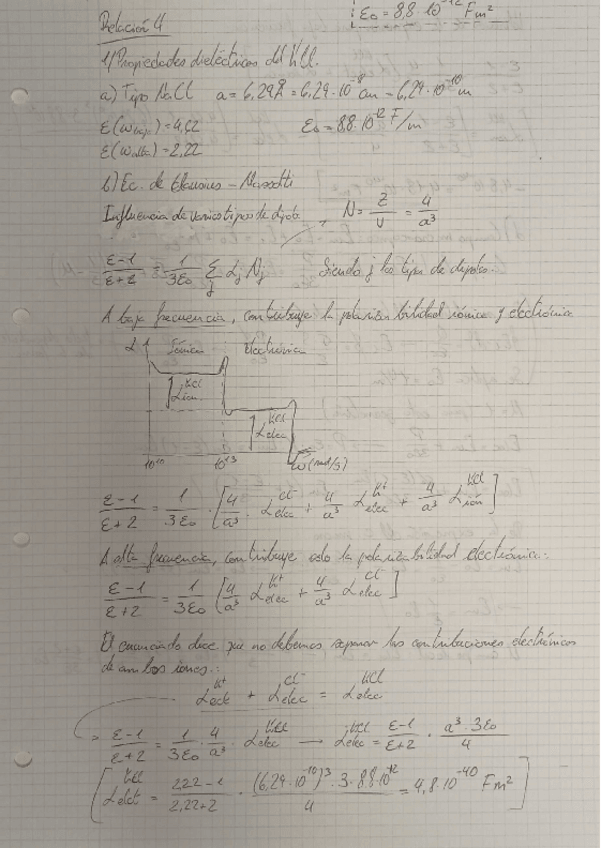 ε₀ = 8,8 · 10⁻¹² F m²
Relación 4
1) Propiedades dieléctricas del KCl.
a) Tipo NaCl a = 6,29 Å = 6,29 · 10⁻⁸ cm = 6,29 · 10⁻¹⁰ m
ε(ω baja) = 4,62 ε₀ = 8,8 · 10⁻¹² F/m
ε(ω alta) = 2,22
b) Ec. de Clausius - Mossotti
Influencia de varios tipos de dipolo. N = Z/V = 4/a³
(ε-1)/(ε+2) = 1/(3ε₀) Σ_j α_j N_j Siendo j los tipo de dipolos.
A baja frecuencia, contribuye la polarizabilidad iónica y electrónica
α Iónica Electrónica
α_ion^KCl
α_elec^KCl
10¹⁰ 10¹³ ω (rad/s)
(ε-1)/(ε+2) = 1/(3ε₀) · [4/a³ · α_elec^Cl⁻ + 4/a³ α_elec^K⁺ + 4/a³ α_ión^KCl]
A alta frecuencia, contribuye solo la polarizabilidad electrónica:
(ε-1)/(ε+2) = 1/(3ε₀) [4/a³ α_elec^K⁺ + 4/a³ α_elec^Cl⁻]
El enunciado dice que no debemos separar las contribuciones electrónicas
de ambos iones:
α_elect^K⁺ + α_elec^Cl⁻ = α_elec^KCl
(ε-1)/(ε+2) = 1/(3ε₀) · 4/a³ · α_elec^KCl → α_elec^KCl = (ε-1)/(ε+2) · (a³ · 3ε₀)/4
[α_elect^KCl = (2,22-1)/(2,22+2) · ((6,29 · 10⁻¹⁰)³ · 3 · 8,8 · 10⁻¹²)/4 = 4,8 · 10⁻⁴⁰ F m²]